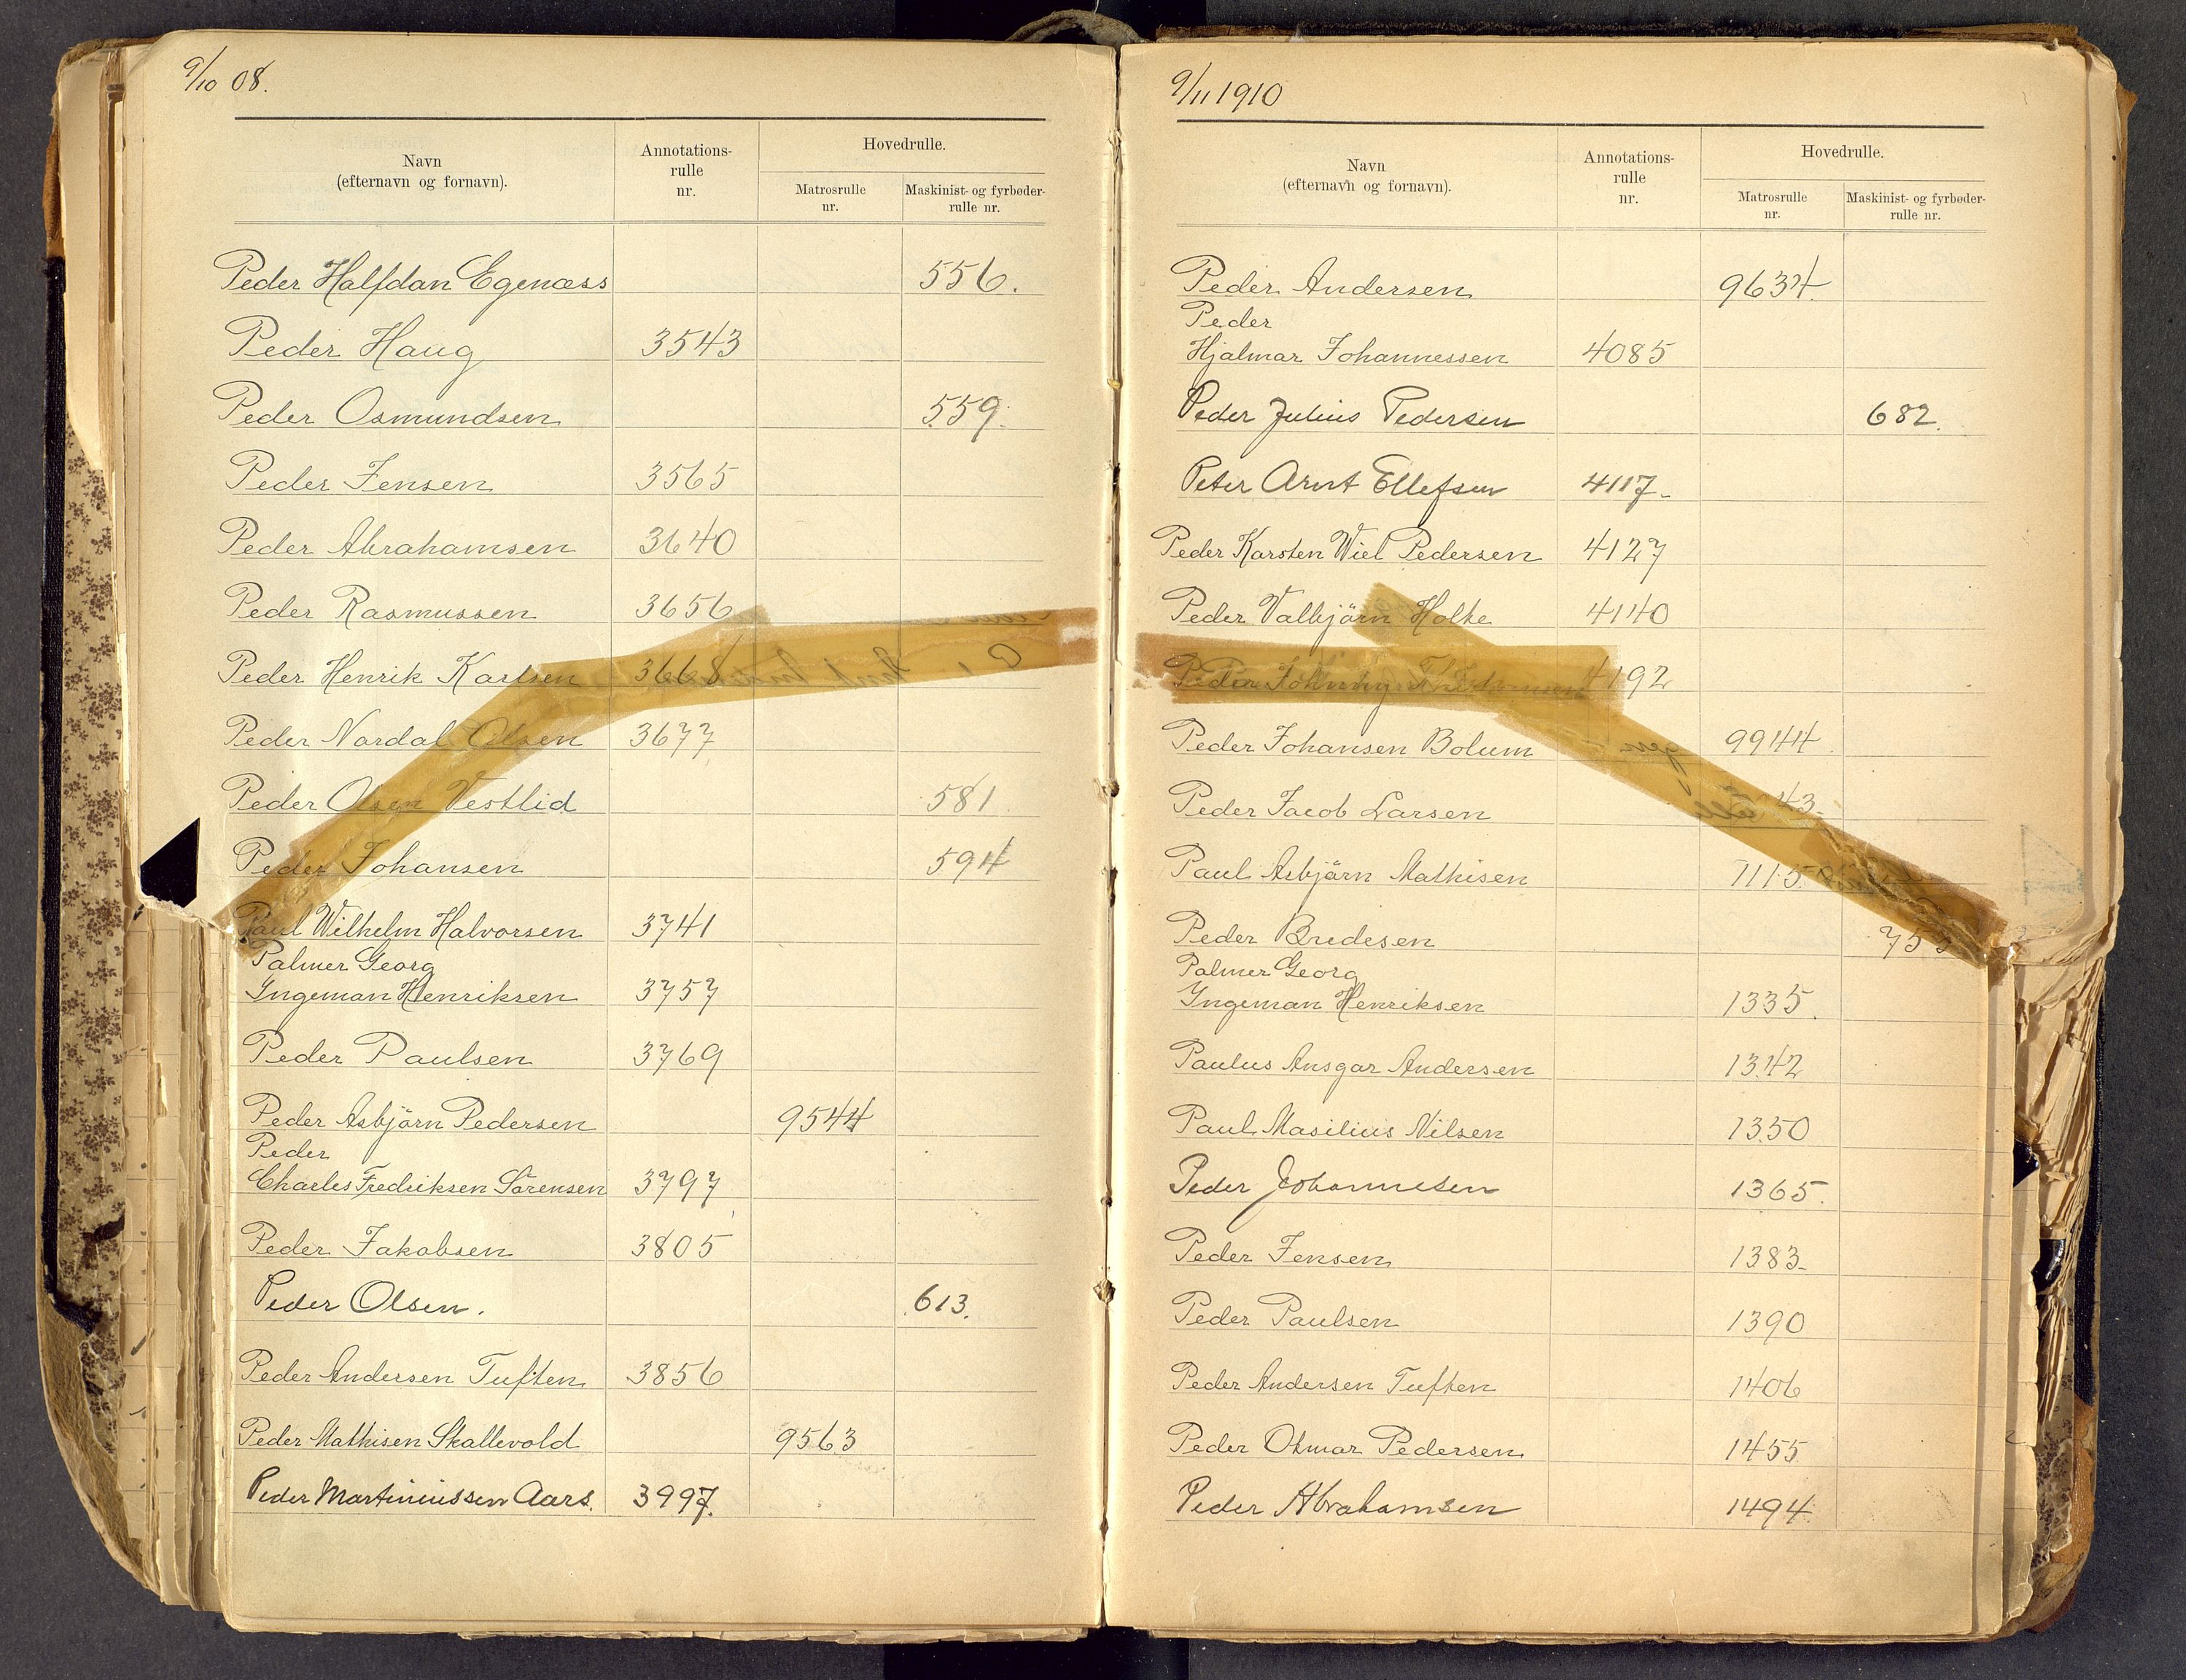 9/10 08.
Navn
(efternavn og fornavn).
Annotations-
rulle
nr.
Hovedrulle.
Matrosrulle
nr.
Maskinist- og fyrbøder-
rulle nr.
Peder Halfdan Egenæss 556.
Peder Haug 3543
Peder Osmundsen 559.
Peder Jensen 3565
Peder Abrahamsen 3640
Peder Rasmussen 3656
Peder Henrik Karlsen 3668
Peder Nordal Olsen 3677
Peder Olsen Vestlid 581.
Peder Johansen 594
Paul Wilhelm Halvorsen 3741
Palmer Georg
Ingeman Henriksen 3757
Peder Paulsen 3769
Peder Asbjörn Pedersen 9544
Peder
Charles Fredriksen Sörensen 3797
Peder Jakobsen 3805
Peder Olsen. 613.
Peder Andersen Tuften 3856
Peder Mathisen Skallevold 9563
Peder Martiniussen Aars. 3997.
9/11 1910
Navn
(efternavn og fornavn).
Annotations-
rulle
nr.
Hovedrulle.
Matrosrulle
nr.
Maskinist- og fyrbøder-
rulle nr.
Peder Andersen 9634.
Peder
Hjalmar Johannessen 4085
Peder Julius Pedersen 682.
Peter Arnt Ellefsen 4117-
Peder Karsten Wiel Pedersen 4127
Peder Valbjörn Holte 4140
Peder 4192
Peder Johansen Bolum 9944
Peder Jacob Larsen 43.
Paul Asbjörn Mathisen 7115
Peder Bredesen
Palmer Georg
Ingeman Henriksen 1335.
Paulus Ansgar Andersen 1342
Paul Masilius Nilsen 1350
Peder Johannesen 1365.
Peder Jensen 1383.
Peder Paulsen 1390
Peder Andersen Tuften 1406
Peder Otmar Pedersen 1455
Peder Abrahamsen 1494.